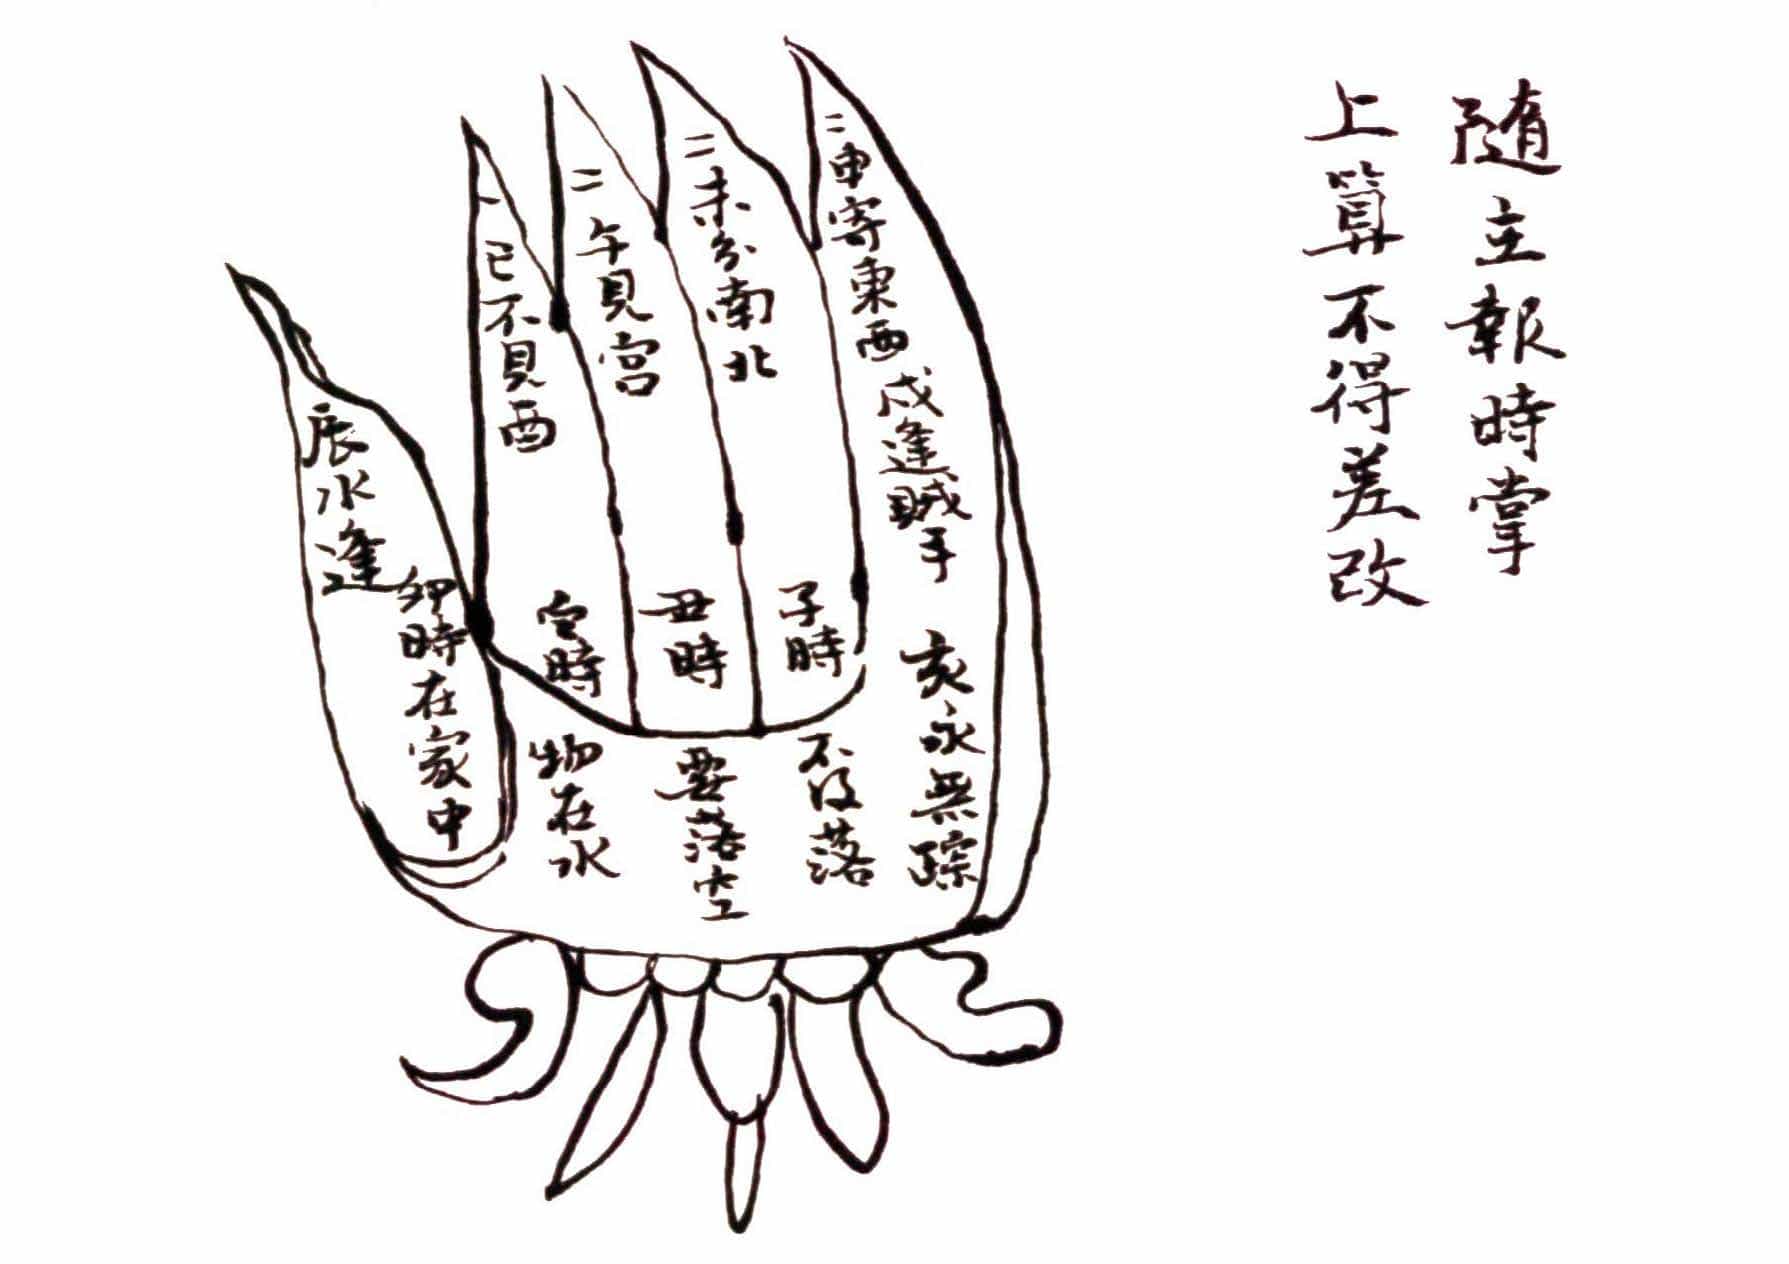 隨主報時掌
上算不得差改
二申寄東西
戌逢賊手
亥永無踪
二未分南北
子時
不没落
二午見宮
丑時
要落空
一巳不見西
時
物在水
辰水逢
卯時在家中